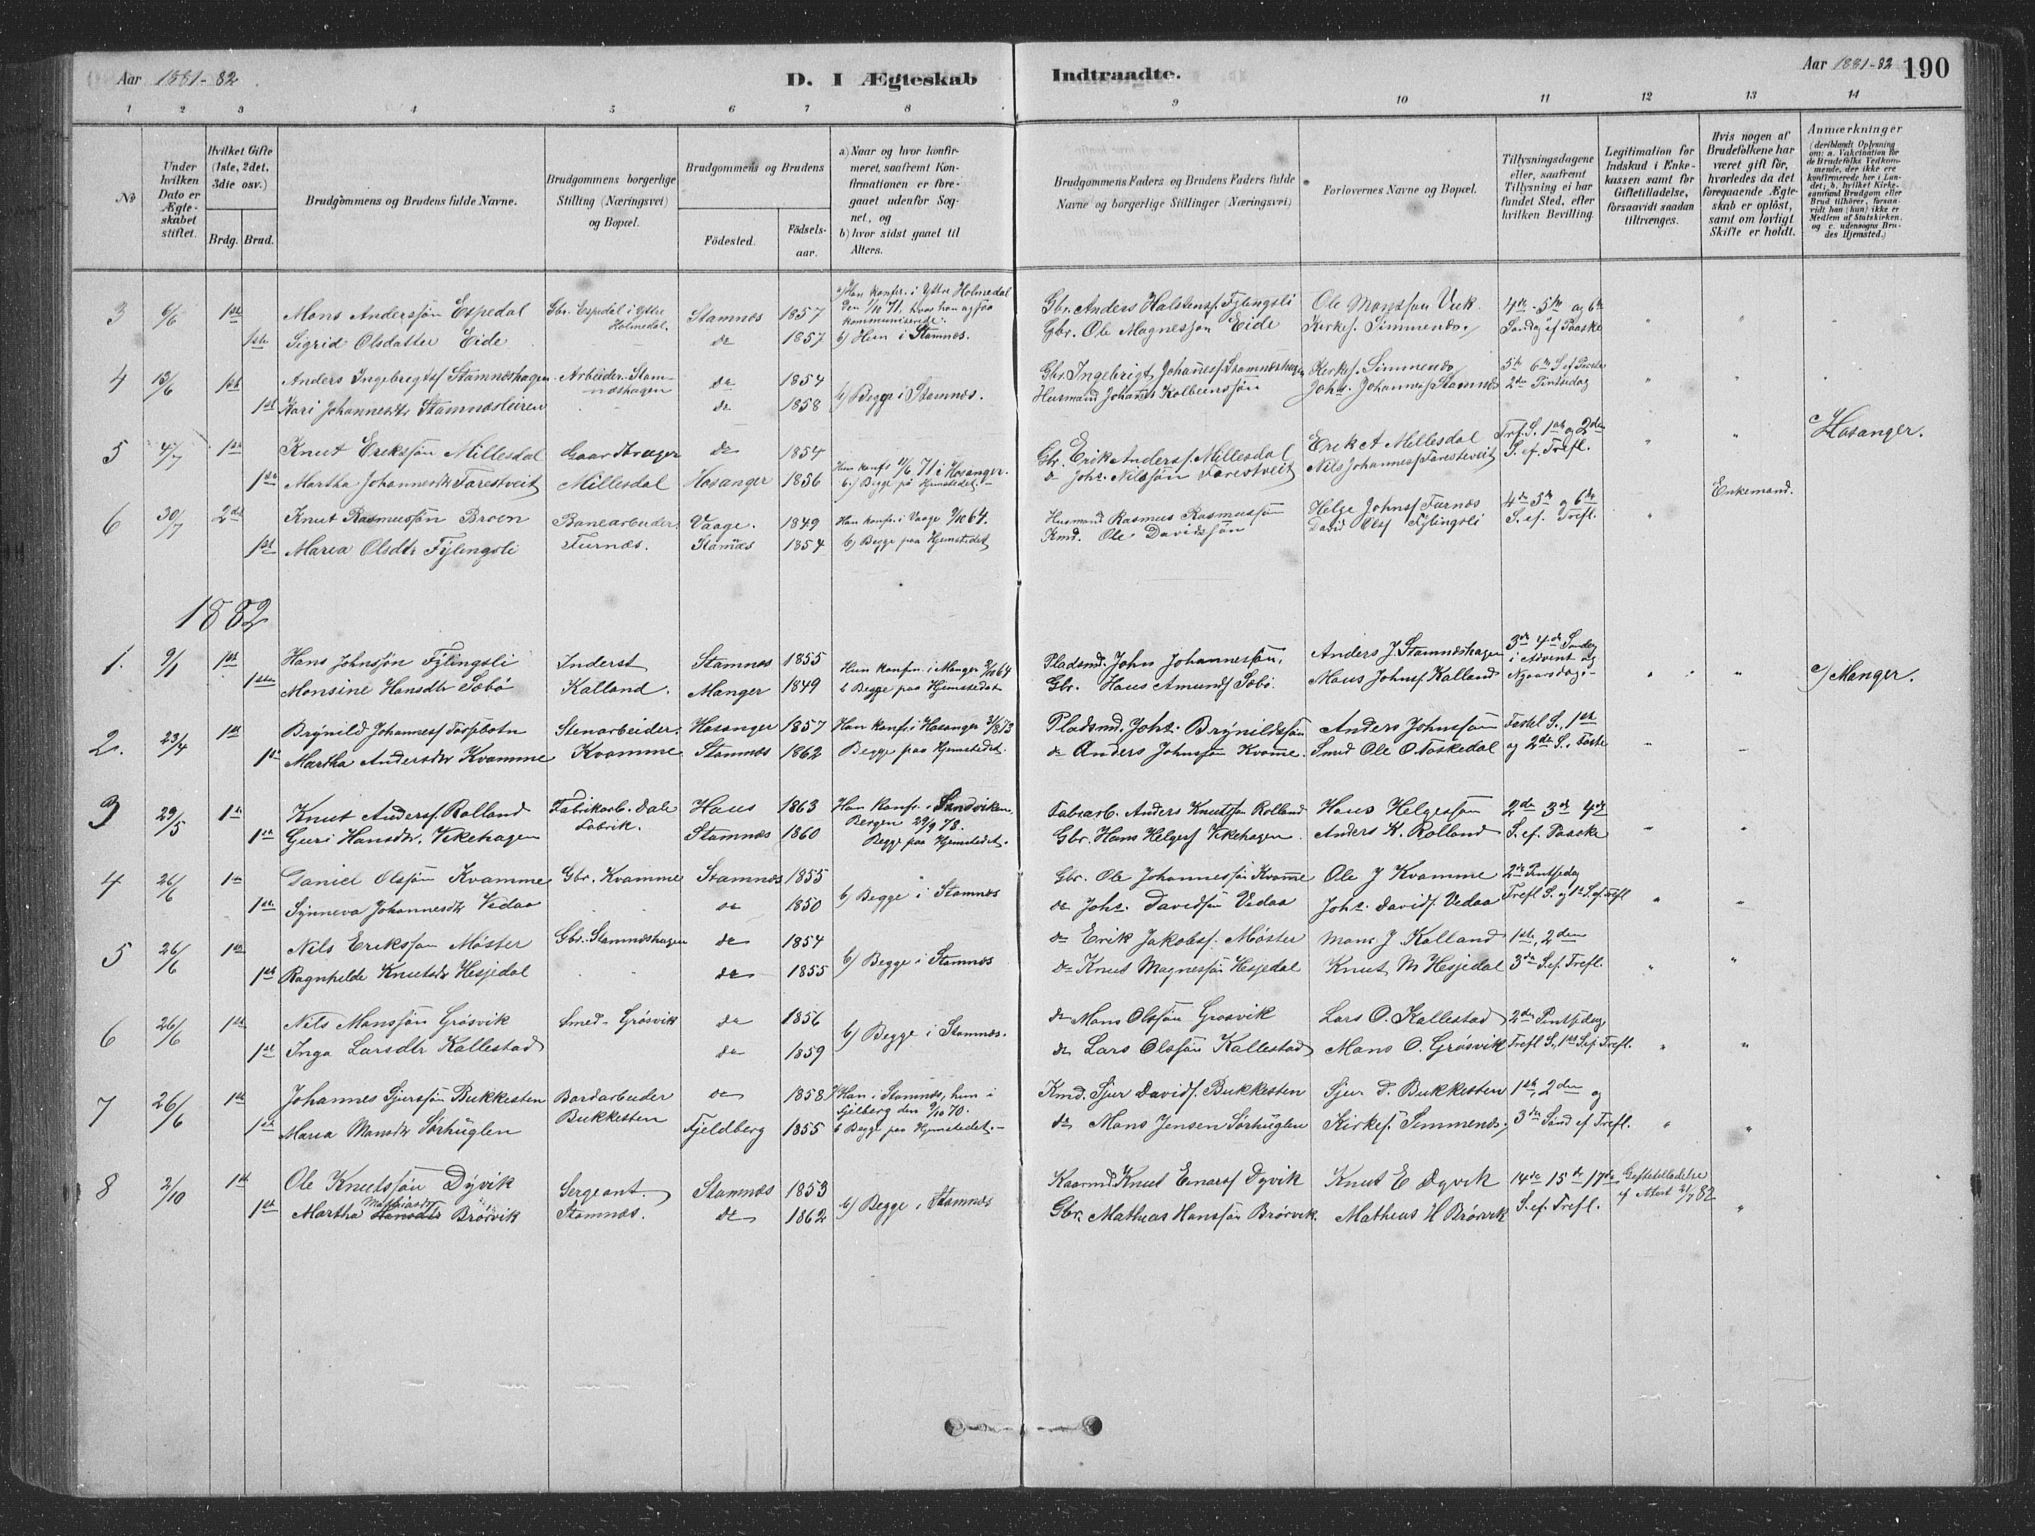 Aar 1881-82.
D. I Ægteskab Indtraadte.
Aar 1881-82 190
1 2 3 4 5 6 7 8 9 10 11 12 13 14
No
Under hvilken Dato er Ægteskabet stiftet.
Hvilket Gifte (1ste, 2det, 3die osv.)
Brdg. Brud.
Brudgommens og Brudens fulde Navne.
Brudgommens borgerlige Stilling (Næringsvei) og Bopæl.
Brudgommens og Brudens
Födested.
Födselsaar.
a) Naar og hvor konfirmeret, saafremt Konfirmationen er foregaaet udenfor Sognet, og
b) hvor sidst gaaet til Alters.
Brudgommens Faders og Brudens Faders fulde Navne og borgerlige Stillinger (Næringsvei)
Forlovernes Navne og Bopæl.
Tillysningsdagene eller, saafremt Tillysning ei har fundet Sted, efter hvilken Bevilling.
Legitimation for Indskud i Enkekassen samt for Giftetilladelse, forsaavidt saadan tiltrænges.
Hvis nogen af Brudefolkene har været gift før, hvorledes da det foregaaende Ægteskab er oplöst, samt om lovligt Skifte er holdt.
Anmærkninger (deriblandt Oplysning om: a. Vakcination for de Brudefolks Vedkommende, der ikke ere konfirmerede her i Landet; b. hvilket Kirkesamfund Brudgom eller Brud tilhörer, forsaavidt han (hun) ikke er Medlem af Statskirken, og c. udensogns Brudes Hjemsted.)
3 6/6 1ste Mons Anderssøn Espedal Gbr. Espedal i Yttre Holmedal. Stamnes 1857 a) Han konfr. i Yttre Holmedal den 1/10 71, hvor han ogsaa kommunicerede. Gbr. Anders Halstensf. Fylingsli Ole Monssøn Vik 4de - 5te og 6te
1ste Sigrid Olsdatter Eide do 1857 b) Hun i Stamnes. Gbr. Ole Magnessøn Eide Kirkes. Simmenes Søndag ef Paaske
4 13/6 1ste Anders Ingebrigtsf Stamneshagen Arbeider Stamneshagen do 1854 Gbr. Ingebrigt Johannesf Stamneshagen Kirkes. Simmenes 5te 6te S. ef Paaske
1ste Kari Johannesdtr Stamnesleiren do 1858 b) Begge i Stamnes. Husmand Johannes Kolbeinssøn Johs. Johannesf Stamnes 2den Pintsedag
5 4/7 1ste Knut Erikssøn Millesdal Gaardbruger do 1854 Gbr. Erik Andersf. Millesdal Erik A Millesdal Tref. S. 1ste og 2den c/ Hosanger.
1ste Martha Johannesdtr Farestveit Millesdal Hosanger 1856 Hun konfr 11/6 71 i Hosanger. b.) Begge på Hjemstedet. do Johs. Nilssøn Farestveit Nils Johannesf Farestveit S. ef. Trefl.
6 30/7 2det Knut Rasmussøn Broen Banearbeider Vaage. 1849 Han konfr. i Vaage 2/10 64. Husmand Rasmus Rasmussøn Helge Johnsf Furnes 4de 5te og 6te Enkemand.
1ste Maria Olsdtr Fylingsli Furnes. Stamnes 1854 b) Begge paa Hjemstedet Kmd. Ole Davidsøn David Olsf Fylingsli S. ef. Trefl.
1882
1. 9/1 1ste Hans Johnsøn Fylingsli Inderst Stamnes 1855 Hun konfr. i Manger 2/10 64 Pladsmd. John Johannessøn. Anders J. Stamneshagen 3de 4de Søndag i Advent og c/ Manger.
1ste Monsine Hansdtr Sæbø Kalland. Manger 1849 b Begge paa Hjemstedet Gbr. Hans Amundf Sæbø. Mons Johnsf Kalland Nyaarsdag.
2. 23/4 1ste Brynild Johannesf Torpbotn Stenarbeider. Hosanger 1857 Han konfr. i Hosanger 31/8 73 Pladsmd. Johs. Brynildsøn Anders Johnsøn Fastel S., 1ste
1ste Martha Andersdtr Kvamme Kvamme Stamnes 1862 Begge paa Hjemstedet. do Anders Johnssøn Kvamme. Smed Ole O. Toskedal og 2den S. i Faste
3 29/5 1ste Knut Andersf. Rolland Fabrikarb. Dale Haus 1863 Han konfr. i Sandviken, Bergen 29/9 78. Fabrarb. Anders Knutsøn Rolland Hans Helgessøn 2den 3de 4de
1ste Guri Hansdtr. Vikehagen Fabrik. Stamnes 1860 Begge paa Hjemstedet. Gbr. Hans Helgesf Vikehagen. Anders K. Rolland S. ef. Paaske
4 26/6 1ste Daniel Olssøn Kvamme Gbr. Kvamme Stamnes 1855 Gbr. Ole Johannessøn Kvamme Ole J Kvamme 2den Pintsedag
1ste Synneva Johannesdtr Vedaa do 1850 b) Begge i Stamnes do Johs. Davidsøn Vedaa Johs. Davidf. Vedaa Trefl S. og 1ste S. ef. Trefl
5 26/6 1ste Nils Erikssøn Møster Gbr. Stamneshagen do 1854 do Erik Jakobsf. Møster Mons J Kalland 1ste, 2den
1ste Ragnhilde Knutsdtr Hesjedal do 1855 b) Begge i Stamnes do Knut Magnessøn Hesjedal Knut M Hesjedal 3de S. ef. Trefl.
6 26/6 1ste Nils Monssøn Grøsvik Smed - Grøsvik do 1856 do Mons Olssøn Grøsvik Lars O. Kallestad 2den Pintsedag
1ste Inga Larsdtr Kallestad do 1859 b) Begge i Stamnes. do Lars Olssøn Kallestad Mons O. Grøsvik Trefl S., 1ste S. ef. Trefl.
7 26/6 1ste Johannes Sjurssøn Bukkesten Bordarbeider do 1858 a/ Han i Stamnes, hun i Fjelberg den 9/10 70. Kmd. Sjur Davidf. Bukkesten Sjur D. Bukkesten 1ste, 2den og
1ste Maria Monsdtr Sørhuglen Bukkesten Fjeldberg 1855 b Begge paa Hjemstedet. do Mons Jensen Sørhuglen Kirkes. Simmenes, 3de Sønd ef Trefl.
8 2/10 1ste Ole Knutssøn Dyvik Sergeant. Stamnes 1853 Kaarmd. Knut Einarsf Dyvik Knut E Dyvik 14de 15de 17de Giftetilladelse
1ste Martha Mathiasdtr Brørvik Stamnes. do 1862 b) Begge i Stamnes Gbr. Mathias Hanssøn Brørvik. Mathias H Brørvik S. ef. Trefl. ef Attest 2/7 82